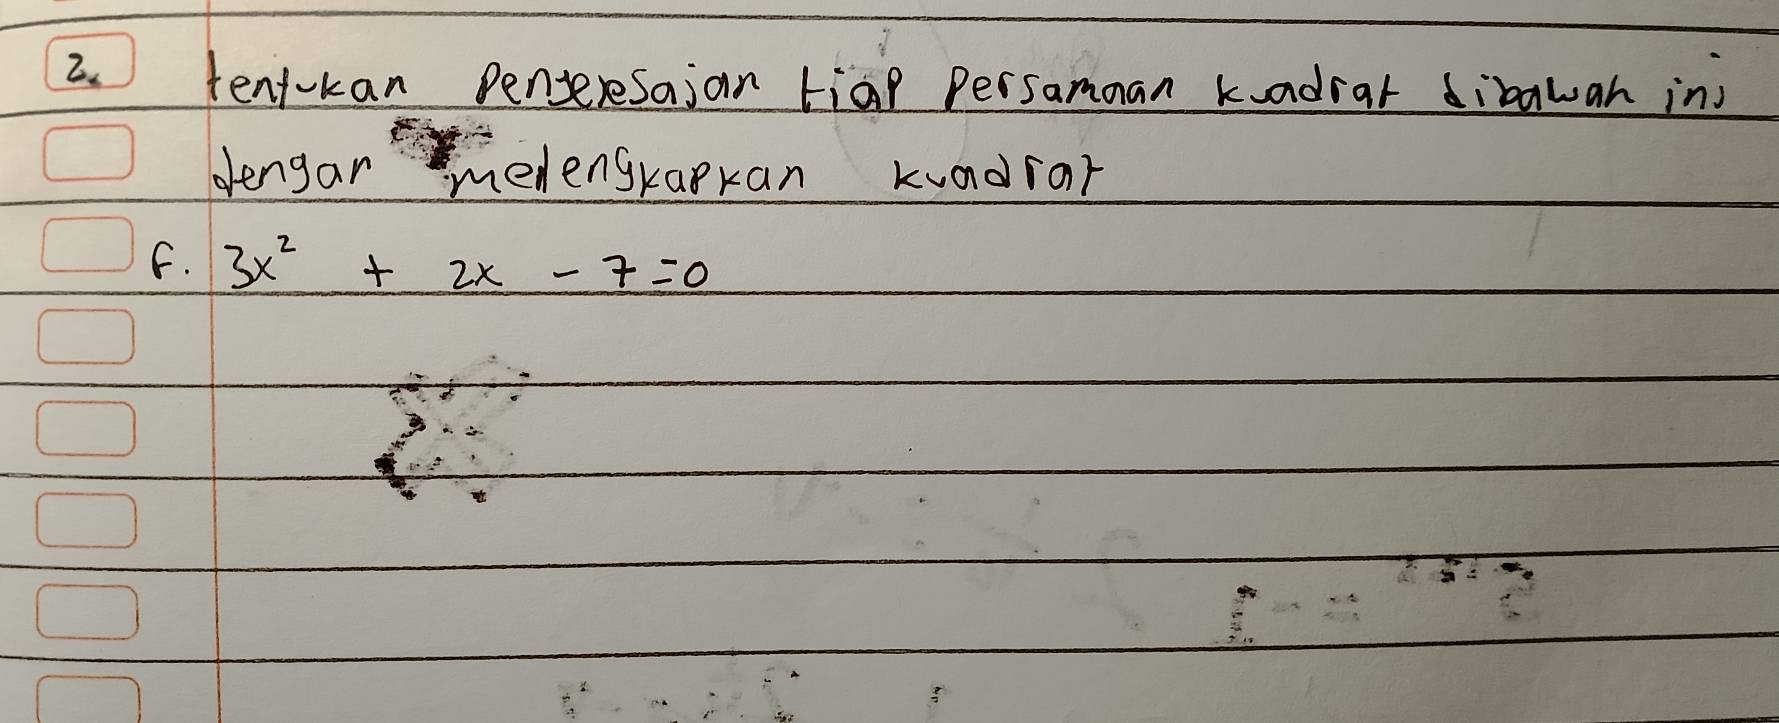 2. tentukan penyelesaian tiap persamaan kuadrat dibawah ini
dengan melengkapkan kuadrat
f. 3x² + 2x - 7 = 0